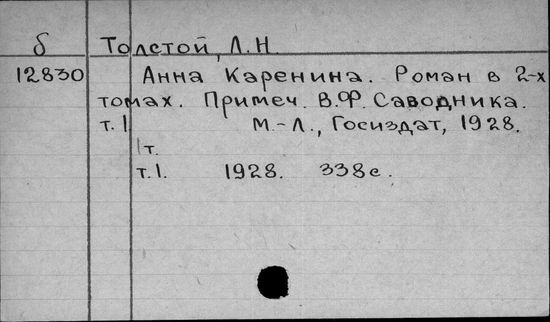 б Толстой, Л.Н
12830 Анна Каренина. Роман в 2-х
томах. Примеч. В.Ф. Саводника.
т. 1 М.-Л., Госиздат, 1928.
1 т.
т. 1. 1928. 338 с.